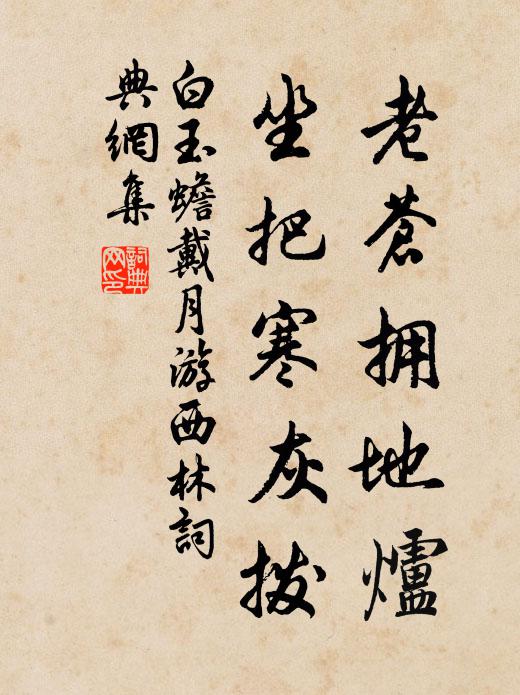 老蒼拥地爐
坐把寒灰拨
白玉蟾戴月游西林詞
典網集
詞典
网印